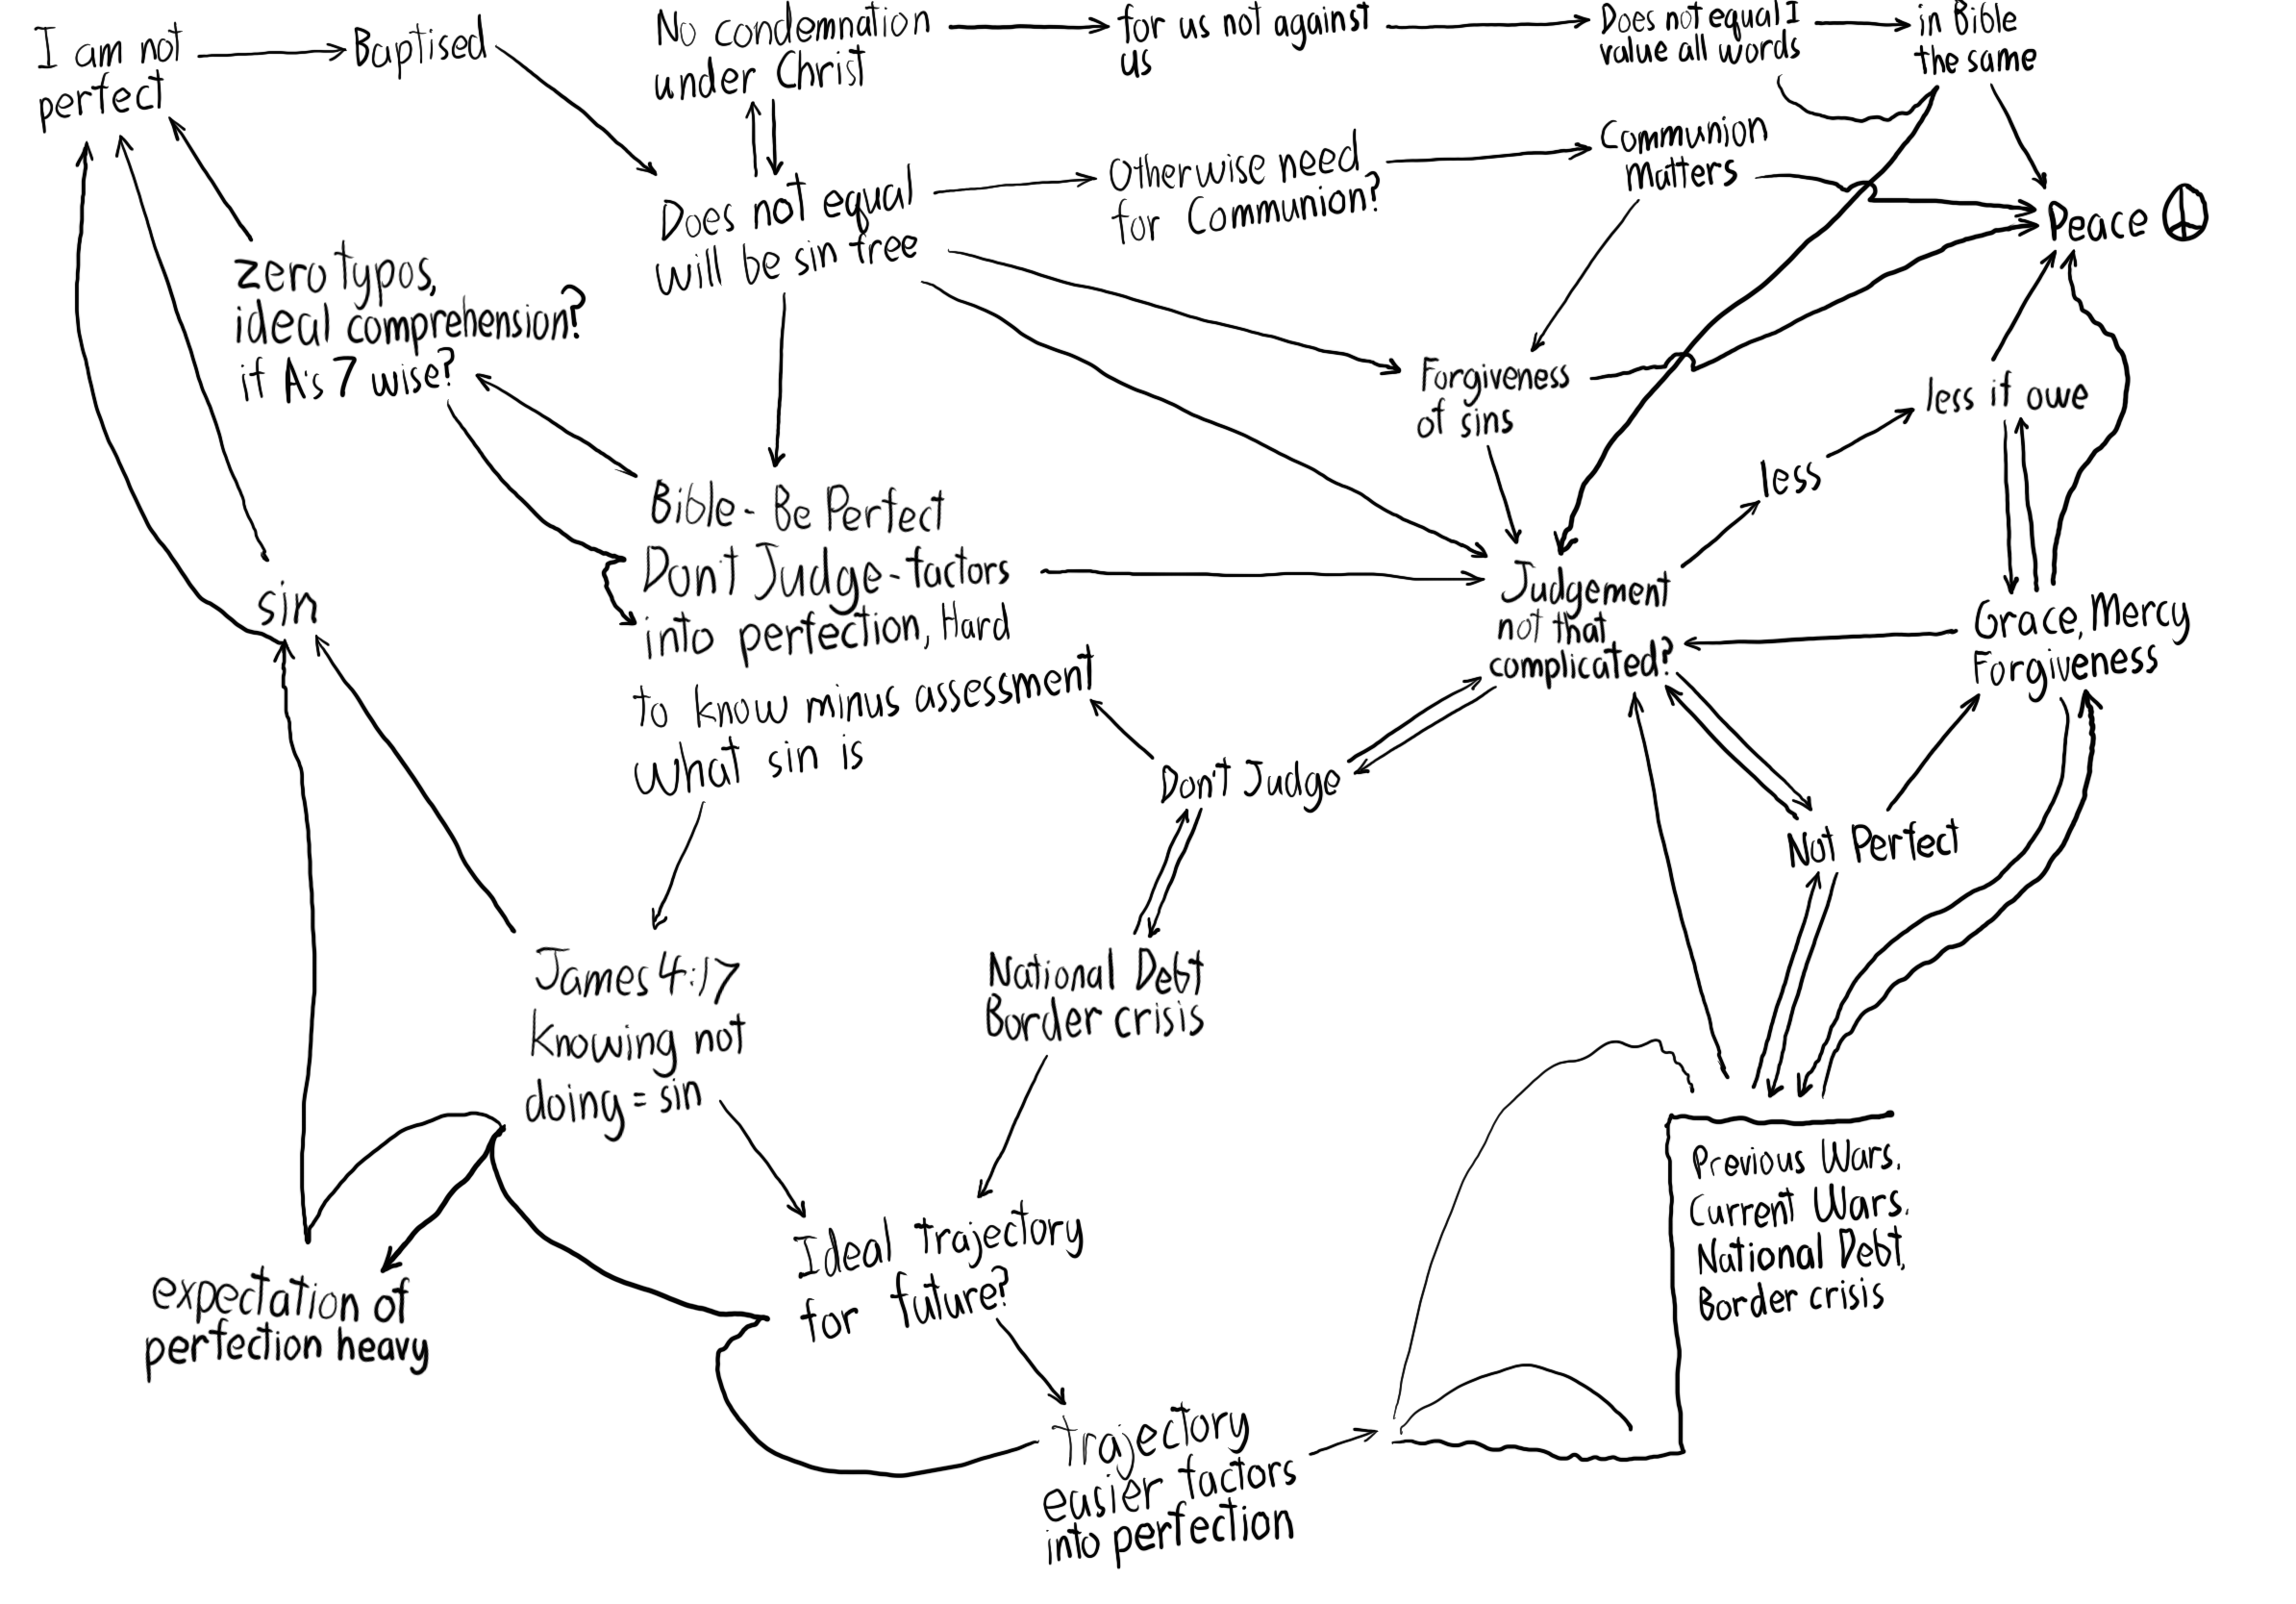 I am not
perfect
Baptised
No condemnation
under Christ
for us not against
us
Does not equal I
value all words
in Bible
the same
Does not equal
will be sin free
Otherwise need
for Communion?
Communion
Matters
Peace
zero typos,
ideal comprehension?
if A's 7 wise?
Forgiveness
of sins
less if owe
less
Bible - Be Perfect
Don't Judge - factors
into perfection, Hard
to know minus assessment
what sin is
sin
Judgement
not that
complicated?
Grace, Mercy
Forgiveness
Don't Judge
Not Perfect
James 4:17
Knowing not
doing = sin
National Debt
Border crisis
Previous Wars.
Current Wars.
National Debt,
Border crisis
Ideal trajectory
for future?
expectation of
perfection heavy
trajectory
easier factors
into perfection